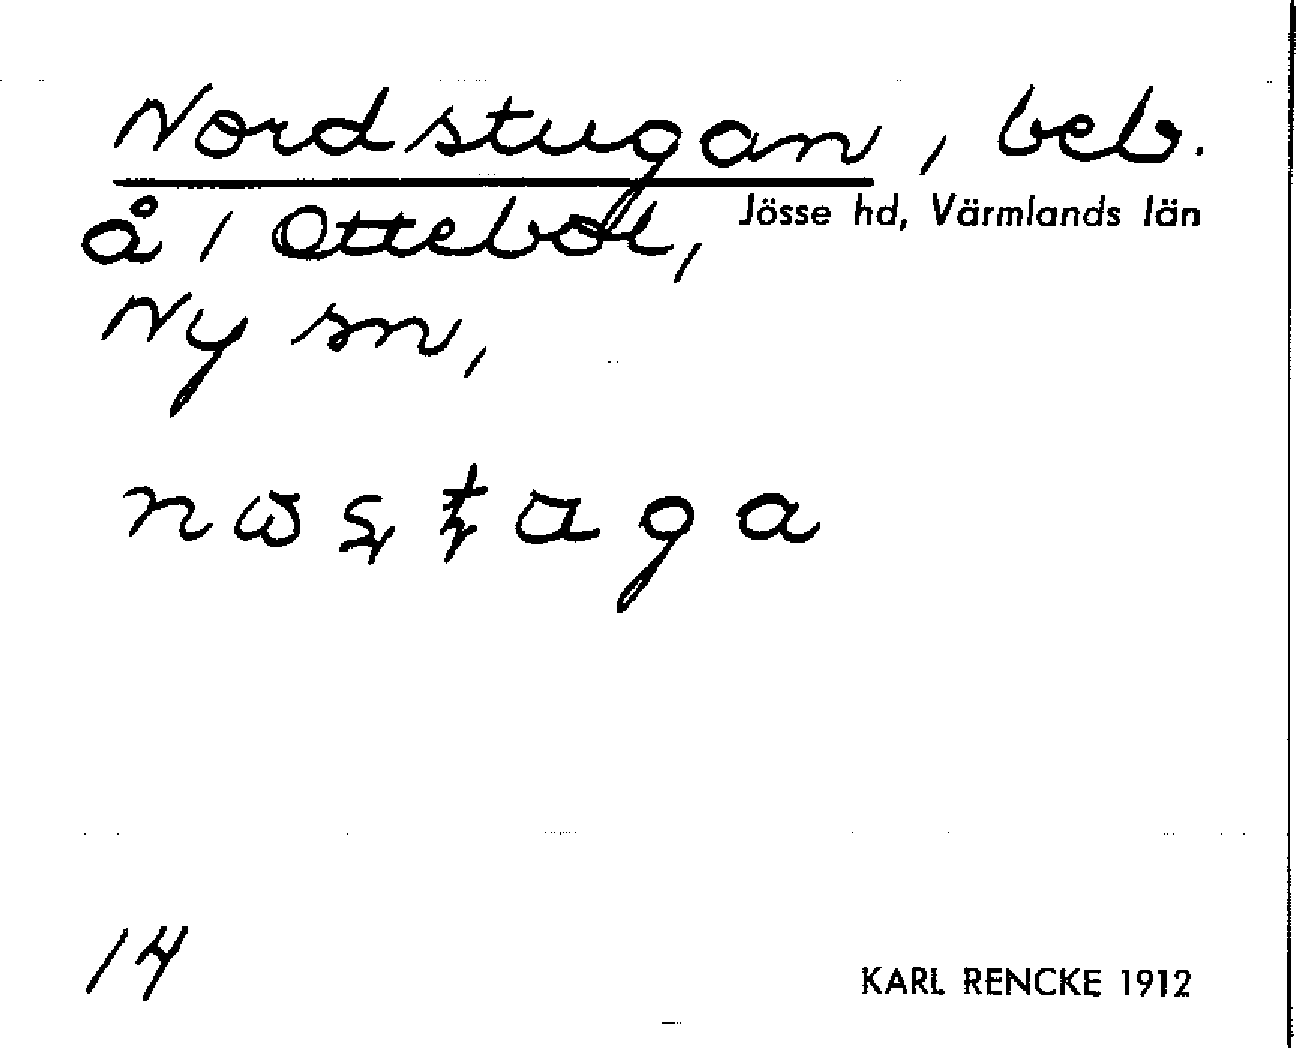 Nordstugan, beb.
å 1 Ottebol,
Jösse hd, Värmlands län
Ny sn,
14
KARL RENCKE 1912